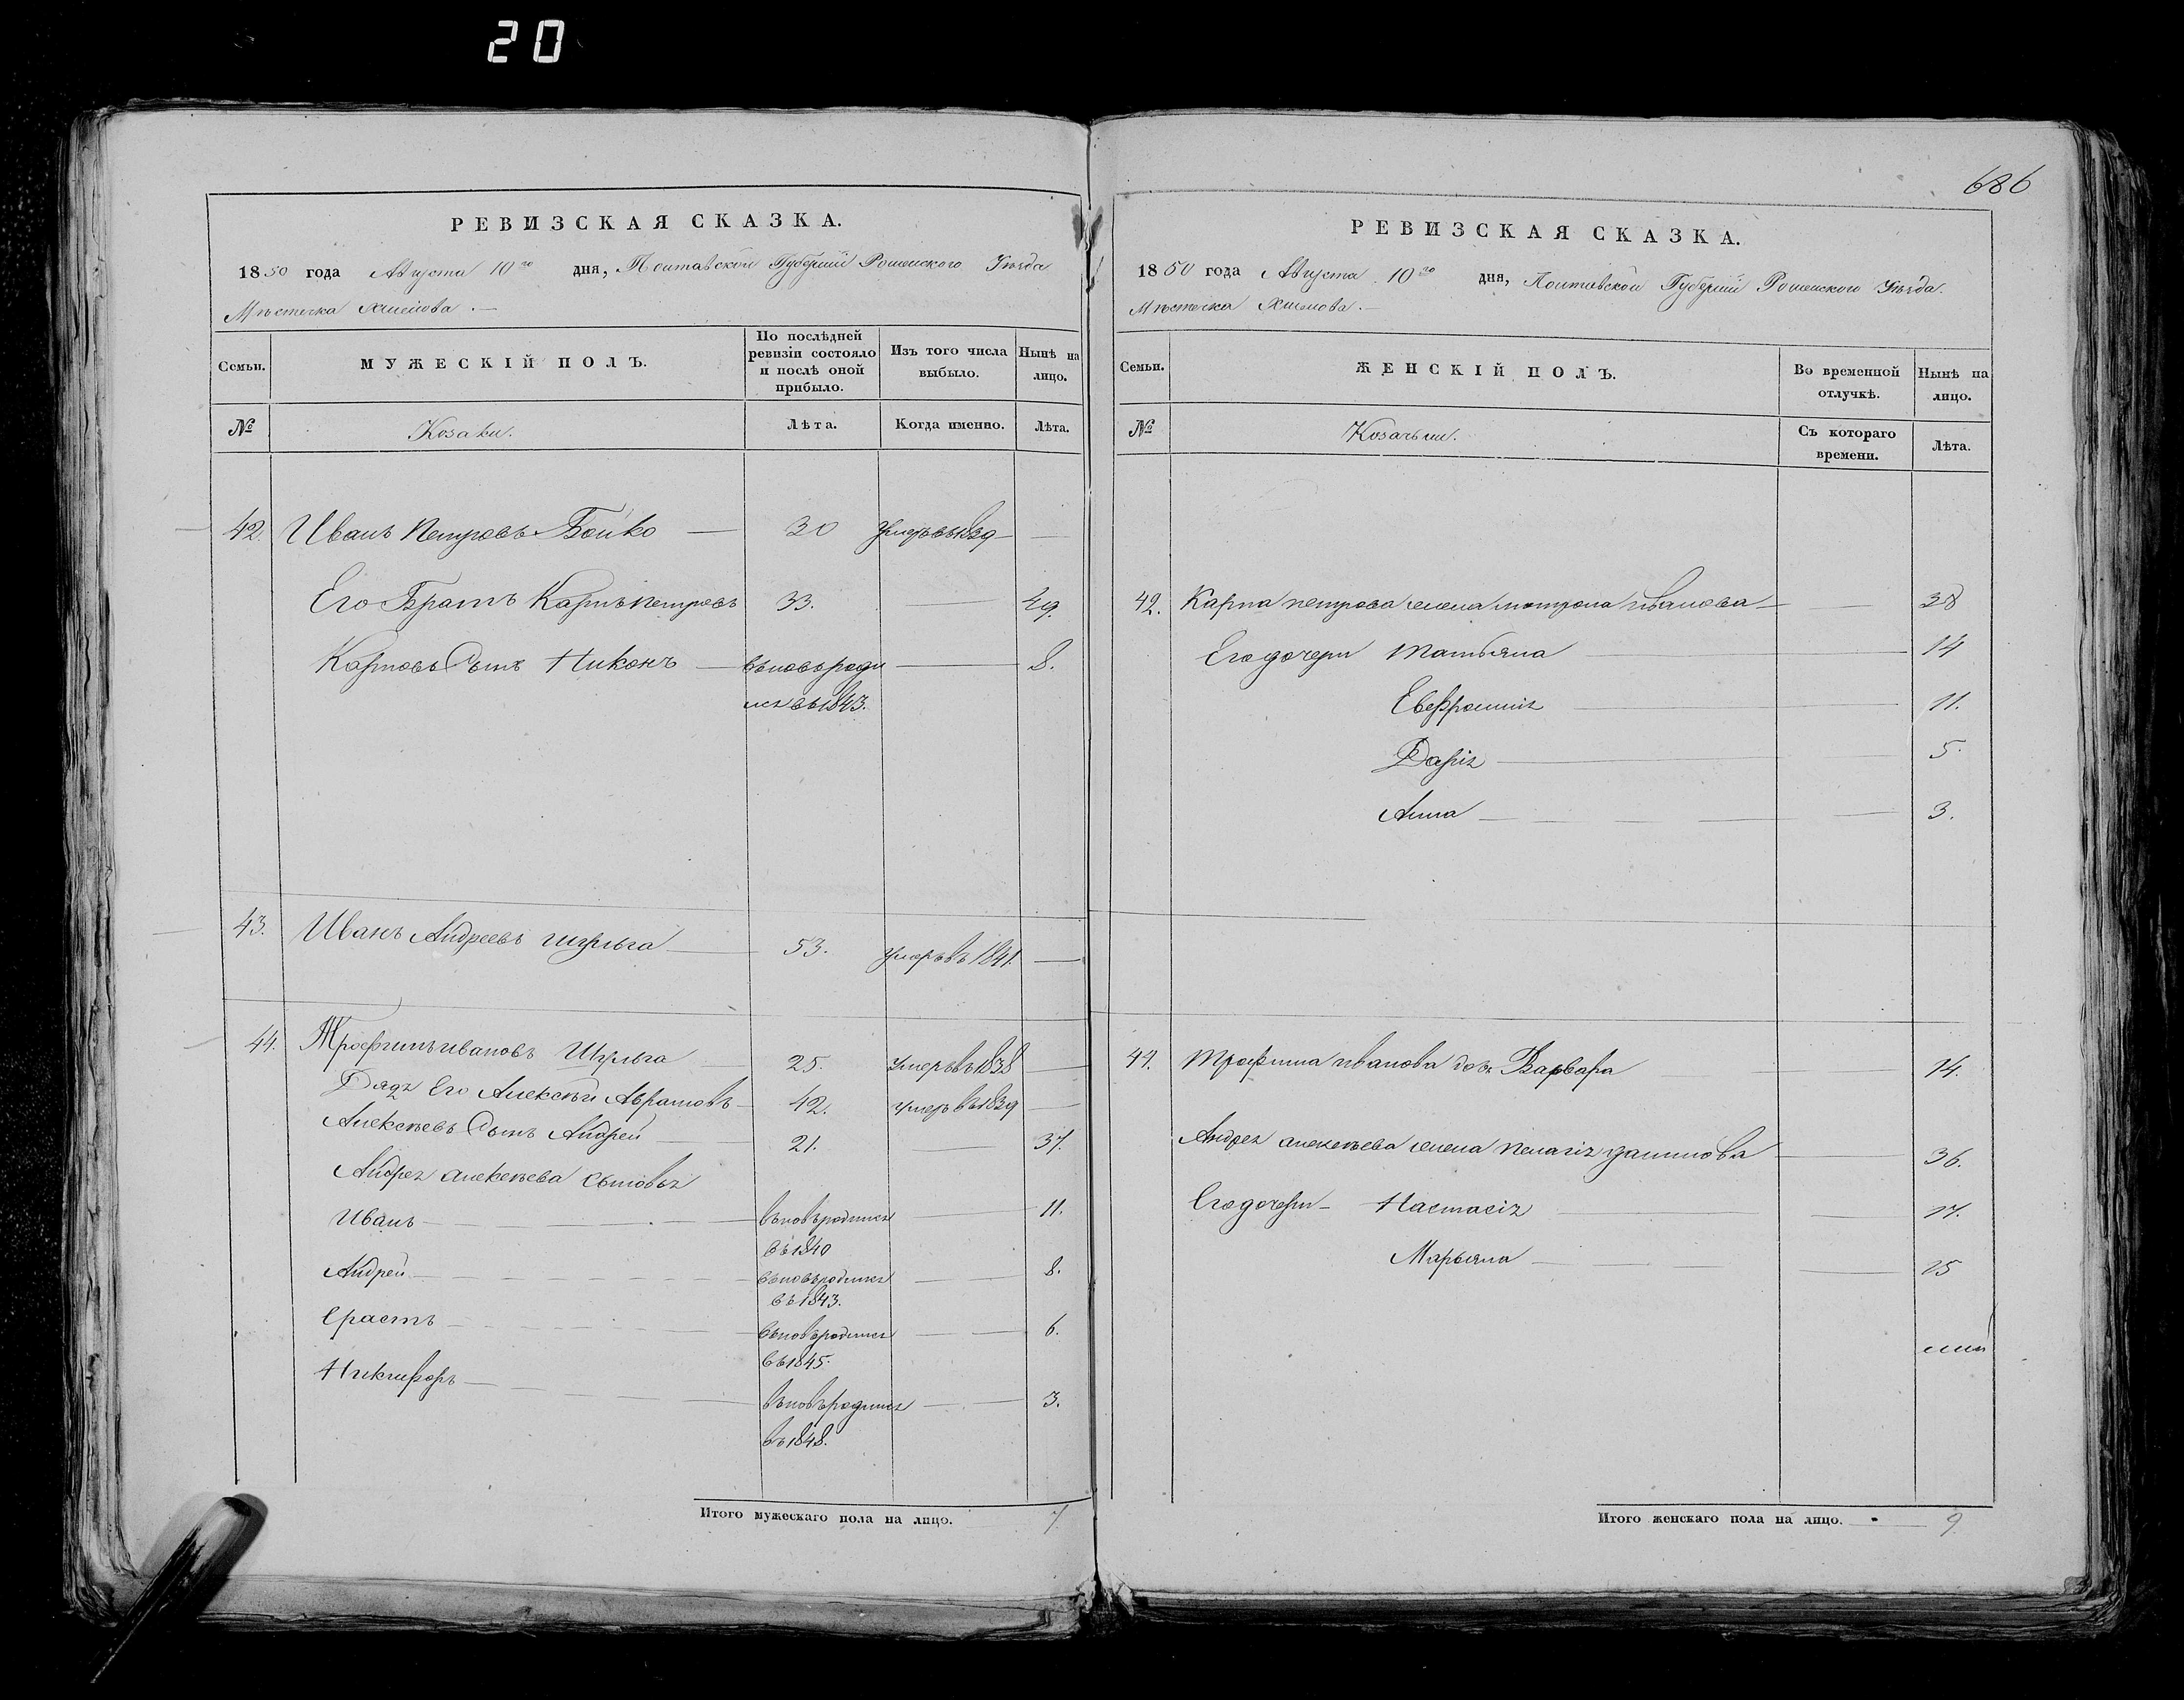 20
686
РЕВИЗСКАЯ СКАЗКА.
1850 года Августа 10го дня, Полтавской Губерніи Роменского Уѣзда
Мѣстечка Хмелова.
Семьи.
МУЖЕСКІЙ ПОЛЪ.
По послѣдней ревизіи состояло и послѣ оной прибыло.
Изъ того числа выбыло.
Нынѣ на лицо.
№
Козаки.
Лѣта.
Когда именно.
Лѣта.
42. Иванъ Петровъ Бойко 30 Умеръ въ 1839
Его Братъ Карпъ Петровъ 33. 49.
Карповъ Сынъ Никонъ вновь роди 8.
лся въ 1843.
43. Иванъ Андреевъ Шульга 53. умеръ въ 1841.
44. Трофимъ Ивановъ Шульга 25. Умеръ въ 1838
Дядя Его Алексѣй Авраамовъ 42. умеръ въ 1839
Алексѣевъ Сынъ Андрей 21. 37.
Андрея Алексѣева сыновья
Иванъ вновь родился 11.
въ 1840
Андрей вновь родился 8.
въ 1843.
Ерастъ вновь родился 6.
въ 1845.
Никифоръ вновь родился 3.
въ 1848.
Итого мужескаго пола на лицо. 7
РЕВИЗСКАЯ СКАЗКА.
1850 года Августа 10го дня, Полтавской Губерніи Роменского Уѣзда.
Мѣстечка Хмелова.
Семьи.
ЖЕНСКІЙ ПОЛЪ.
Во временной отлучкѣ.
Нынѣ на лицо.
№
Козачьи.
Съ котораго времени.
Лѣта.
42. Карпа Петрова жена Мотрона Иванова 38
Его дочери Татьяна 14
Евфросинія 11.
Дарія 5.
Анна 3.
44. Трофима Иванова дочь Варвара 14.
Андрея Алексѣева жена Пелагія Данилова 36.
Его дочери Настасія 17.
Марьяна 15
Итого женскаго пола на лицо. 9